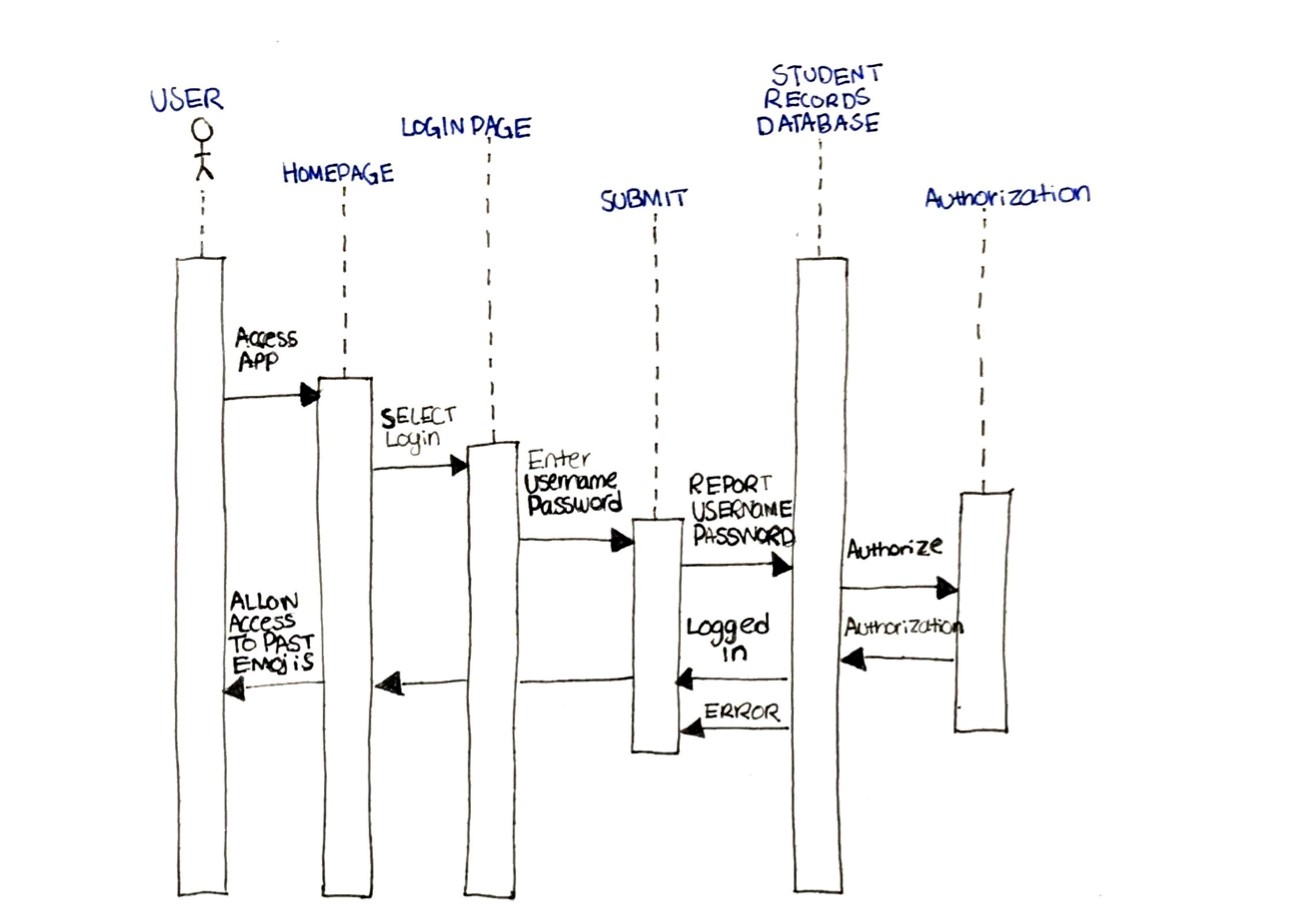 USER
HOMEPAGE
LOGIN PAGE
SUBMIT
STUDENT
RECORDS
DATABASE
Authorization
Access
APP
SELECT
Login
Enter
Username
Password
REPORT
USERNAME
PASSWORD
Authorize
Authorization
Logged
in
ERROR
ALLOW
Access
TO PAST
EMOjiS